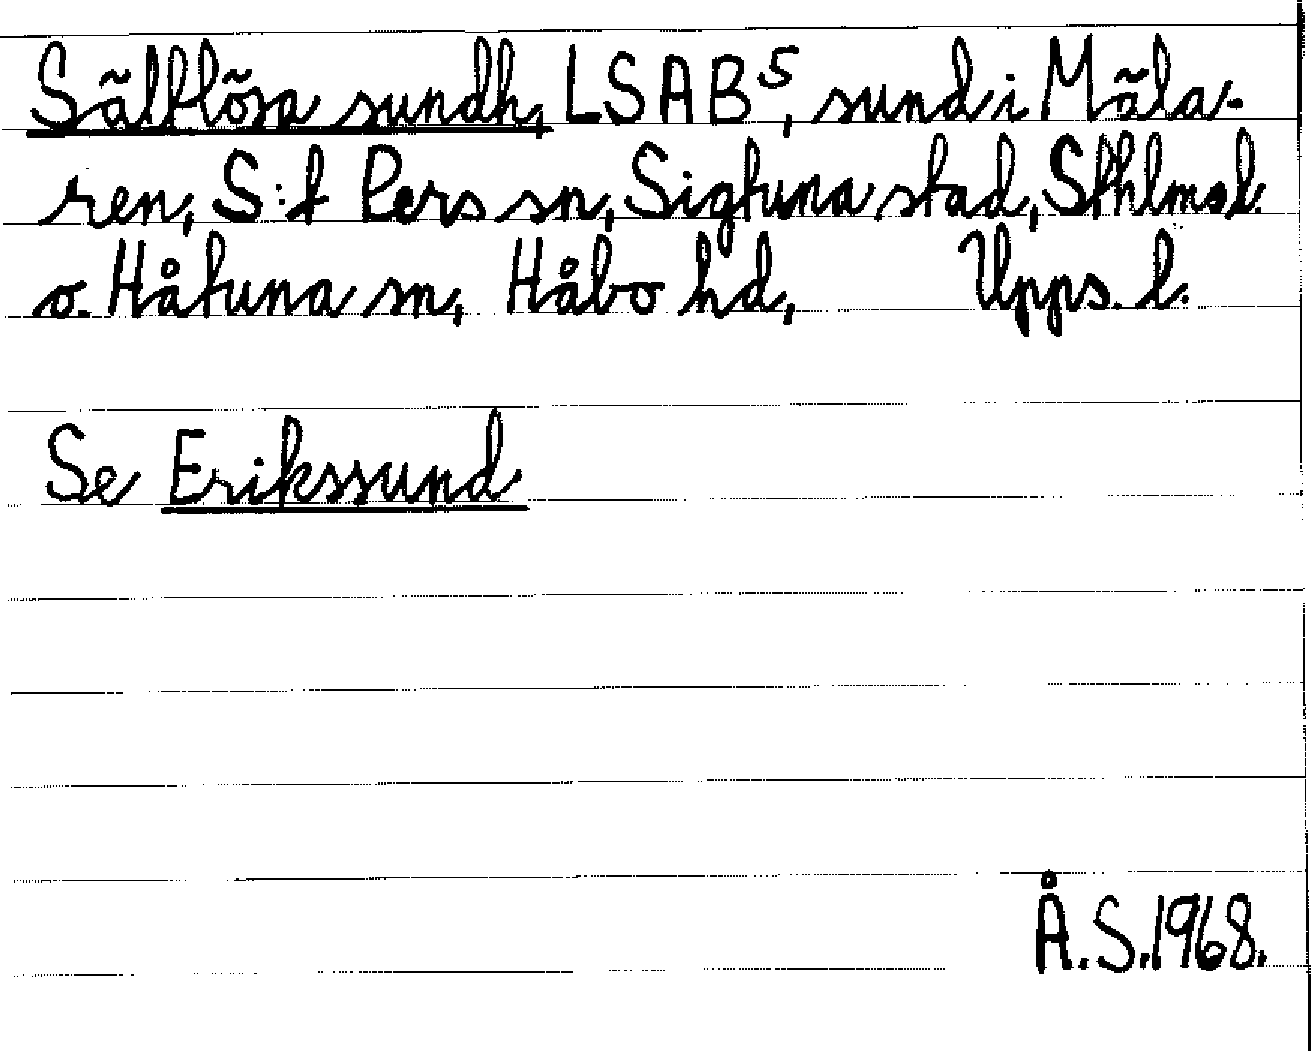 Sältlösa sundh, LSAB⁵, sund i Mäla-
ren, S:t Pers sn, Sigtuna stad, Sthlms l.
o. Håtuna sn, Håbo hd, Upps. l.
Se Erikssund
Å.S.1968.